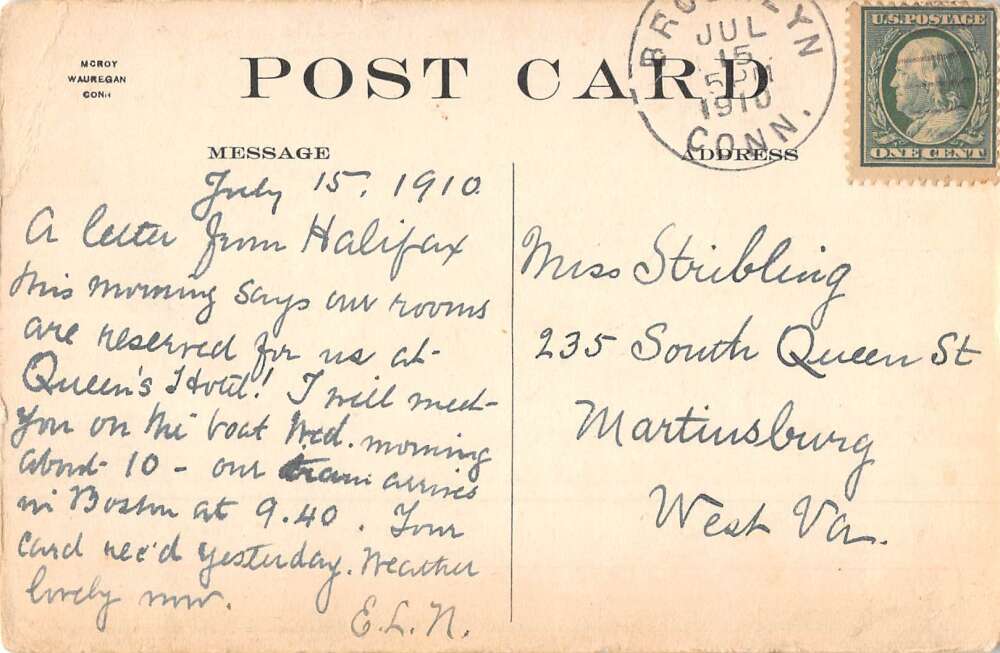 MCROY
WAUREGAN
CONN
POST CARD
BROOKLYN
JUL
15
5 PM
1910
CONN.
U.S. POSTAGE
ONE CENT
MESSAGE
ADDRESS
July 15, 1910
A letter from Halifax
this morning says our rooms
are reserved for us at
Queen's Hotel! I will meet
you on the boat Wed. morning
about 10 - our train arrives
in Boston at 9.40. Your
card rec'd yesterday. Weather
lovely now.
E.L.N.
Miss Stribling
235 South Queen St
Martinsburg
West Va.